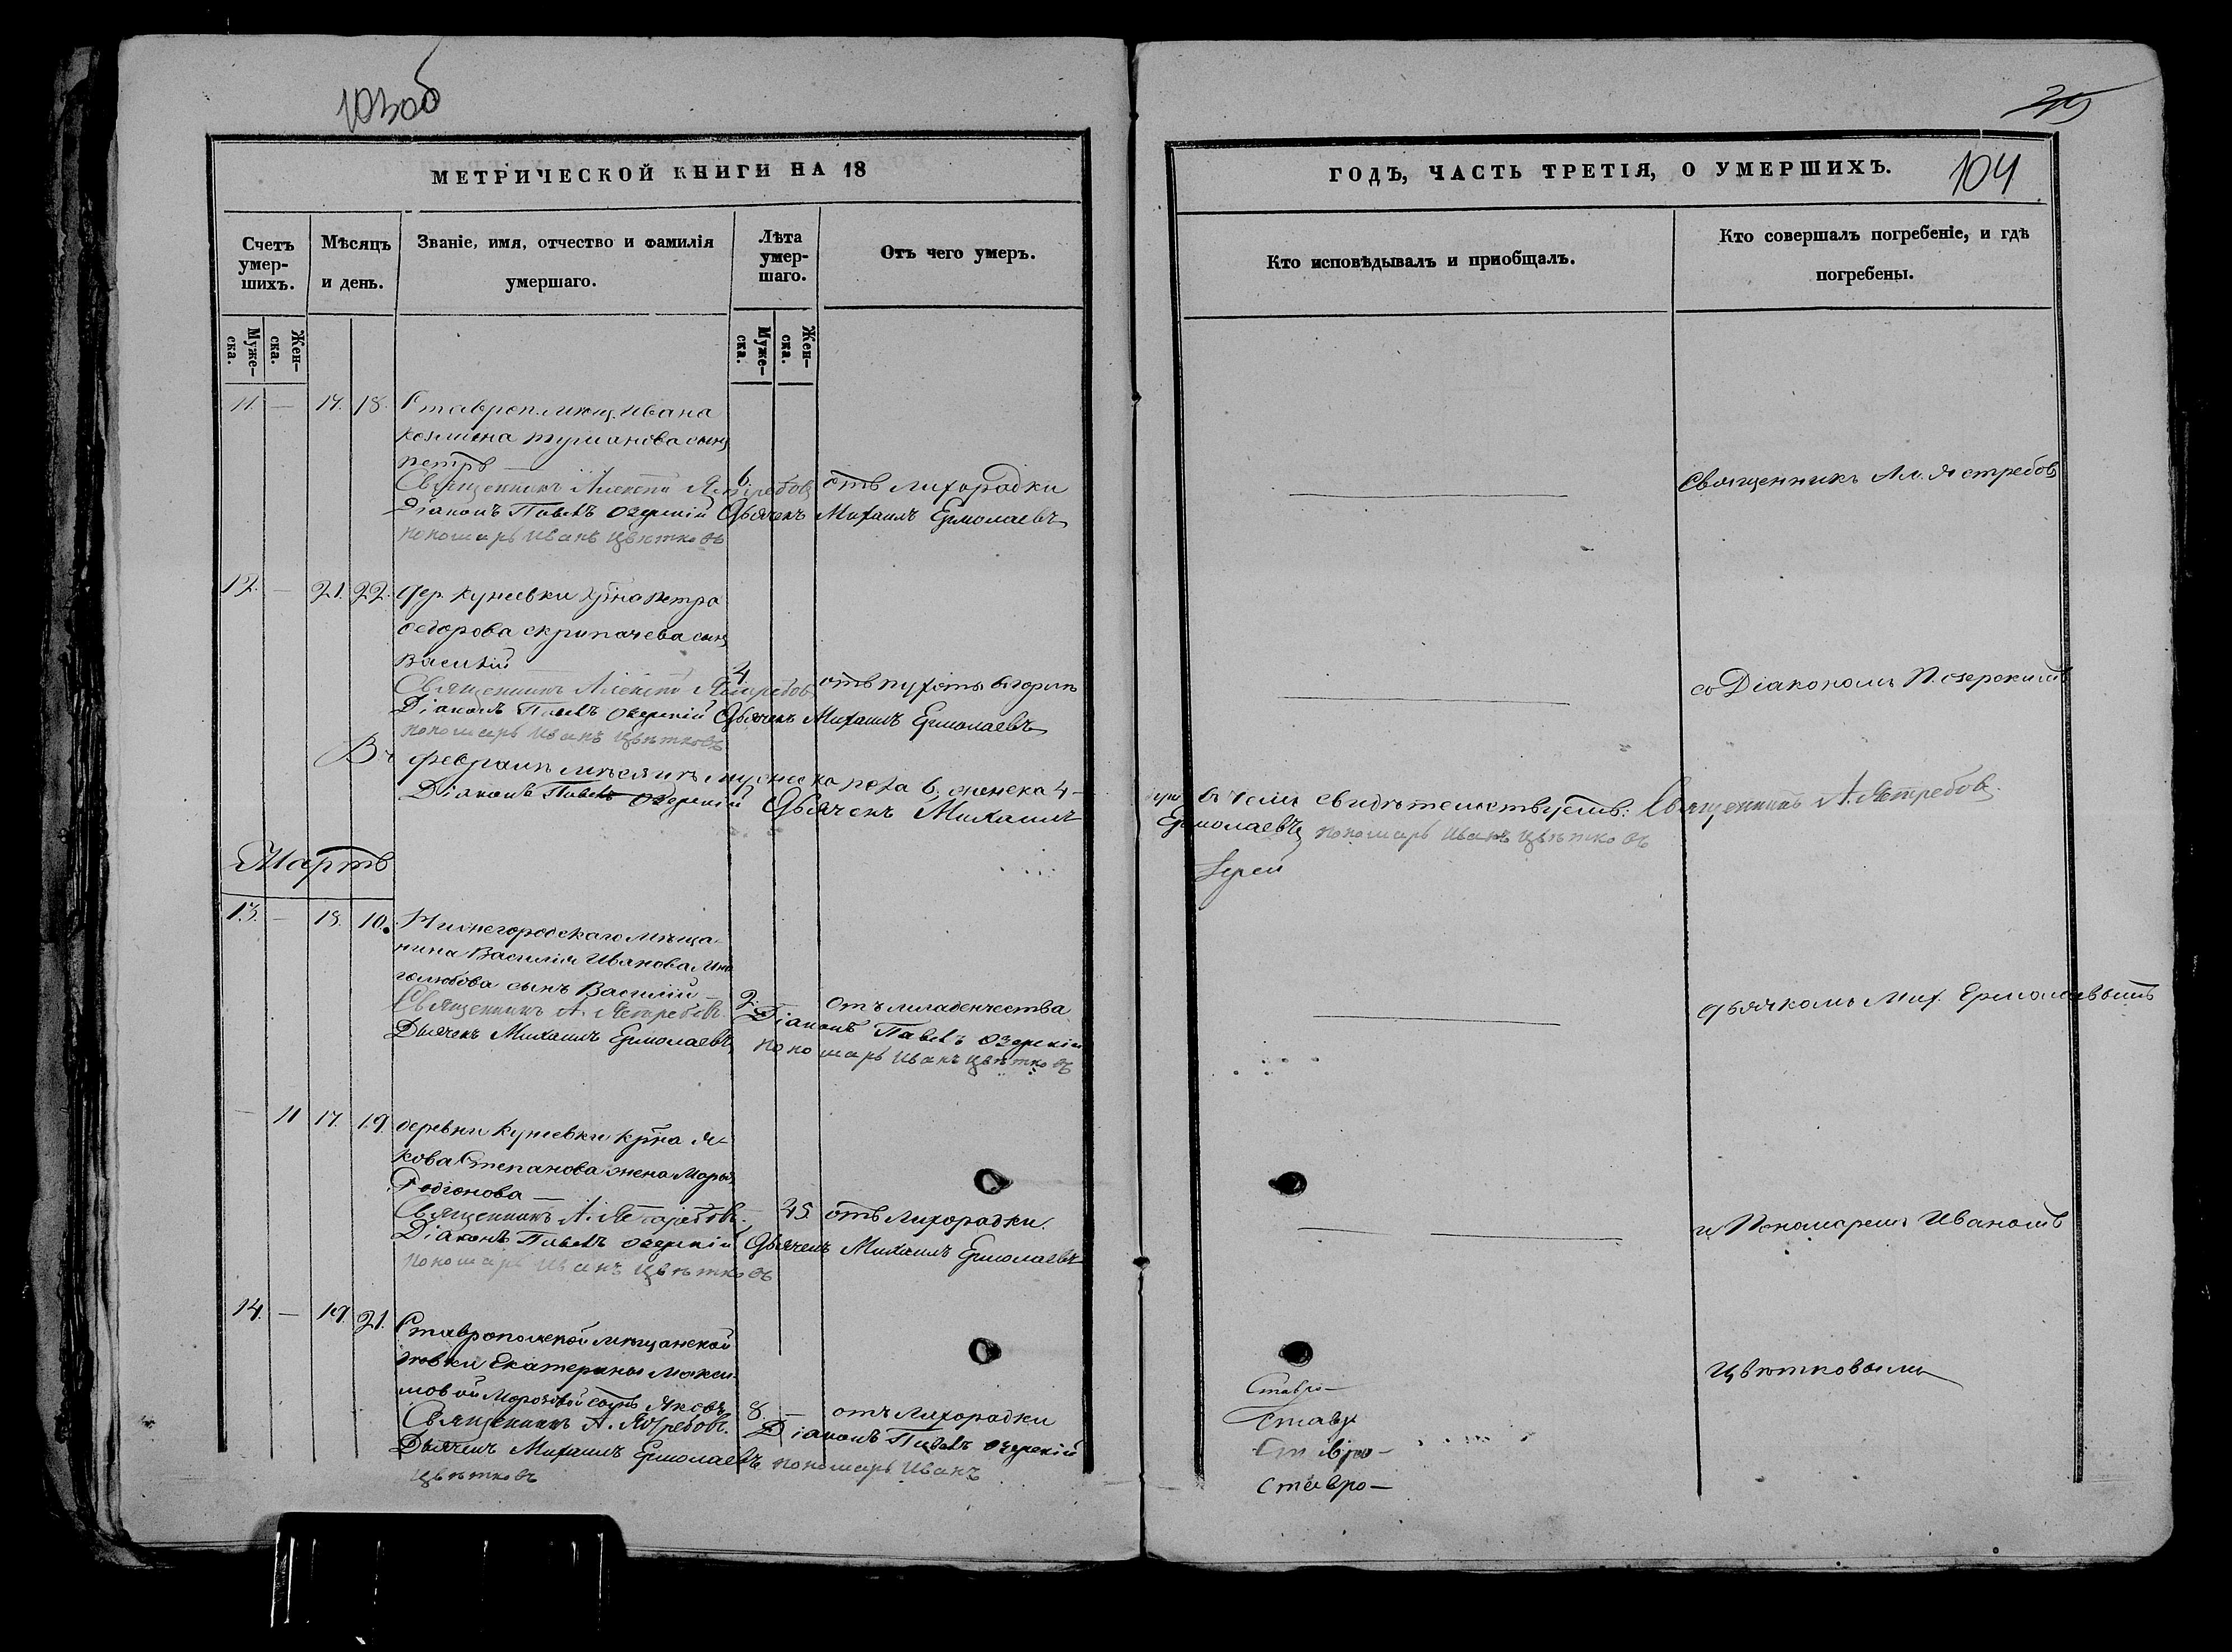 103об
МЕТРИЧЕСКОЙ КНИГИ НА 18
Счетъ умер-шихъ.
Мѣсяцъ и день.
Званіе, имя, отчество и фамилія умершаго.
Лѣта умер-шаго.
Отъ чего умеръ.
Муже-ска.
Жен-ска.
Муже-ска.
Жен-ска.
11. — 17. 18. Ставроп. мѣщ. Ивана
Козмина Туманова сынъ
Петръ —
Священникъ Алексій Ястребовъ 6. отъ лихорадки
Діаконъ Павелъ Озерскій Дьячекъ Михаилъ Ермолаевъ
пономарь Иванъ Цвѣтковъ
12. — 21. 22. Дер. Кунеевки Кр̃на Петра
Ѳедорова Скрипачева сынъ
Василій
Священникъ Алексій Ястребовъ 4 отъ
Діаконъ Павелъ Озерскій Дьячекъ Михаилъ Ермолаевъ
пономарь Иванъ Цвѣтковъ
Въ февралѣ мѣсяцѣ мужеска пола 6. женска 4 —
Діаконъ Павелъ Озерскій Дьячекъ Михаилъ
Мартъ
13. — 10. Нижегородскаго мѣща-
нина Василія Иванова
сынъ Василій —
Священникъ А. Ястребовъ. 2. отъ младенчества
Діаконъ Павелъ Озерскій
Дьячекъ Михаилъ Ермолаевъ
пономарь Иванъ Цвѣтковъ
— 11 17. 19. деревни Кунеевки Кр̃на Я-
кова Степанова жена Марья
Родіонова —
Священникъ А. Ястребовъ. 45. отъ лихорадки.
Діаконъ Павелъ Озерскій Дьячекъ Михаилъ Ермолаевъ
пономарь Иванъ Цвѣтковъ
14. — 19. 21. Ставропольской мѣщанской
дѣвки Екатерины Макси-
мовой Морозовой сынъ Яковъ
Священникъ А. Ястребовъ. 8 — отъ лихорадки
Діаконъ Павелъ Озерскій
Дьячекъ Михаилъ Ермолаевъ пономарь Иванъ
Цвѣтковъ
ГОДЪ, ЧАСТЬ ТРЕТІЯ, О УМЕРШИХЪ.
104
Кто исповѣдывалъ и пріобщалъ.
Кто совершалъ погребеніе, и гдѣ погребены.
Священникъ Ал. Ястребовъ
со Діакономъ П. Озерскимъ
въ чемъ свидѣтельствуетъ: Священникъ А. Ястребовъ.
Ермолаевъ пономарь Иванъ Цвѣтковъ
Іерей
дьячкомъ Мих. Ермолаевымъ
и Пономаремъ Иваномъ
Цвѣтковымъ
Ставро—
Ставр
Ставро—
Ставро—